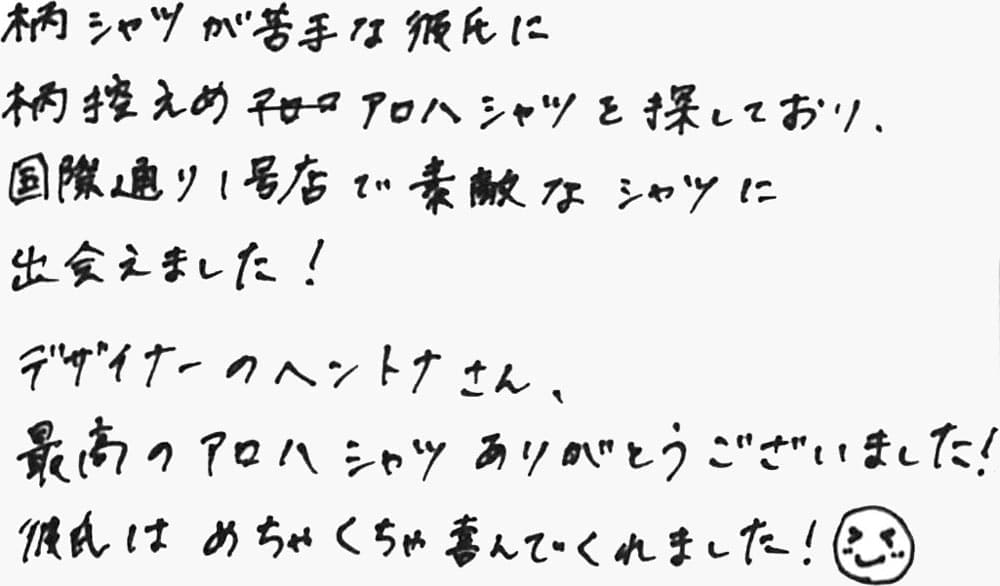 柄シャツが苦手な彼氏に
柄控えめアロハシャツを探しており、
国際通り1号店で素敵なシャツに
出会えました!
デザイナーのヘントナさん、
最高のアロハシャツありがとうございました!
彼氏はめちゃくちゃ喜んでくれました!